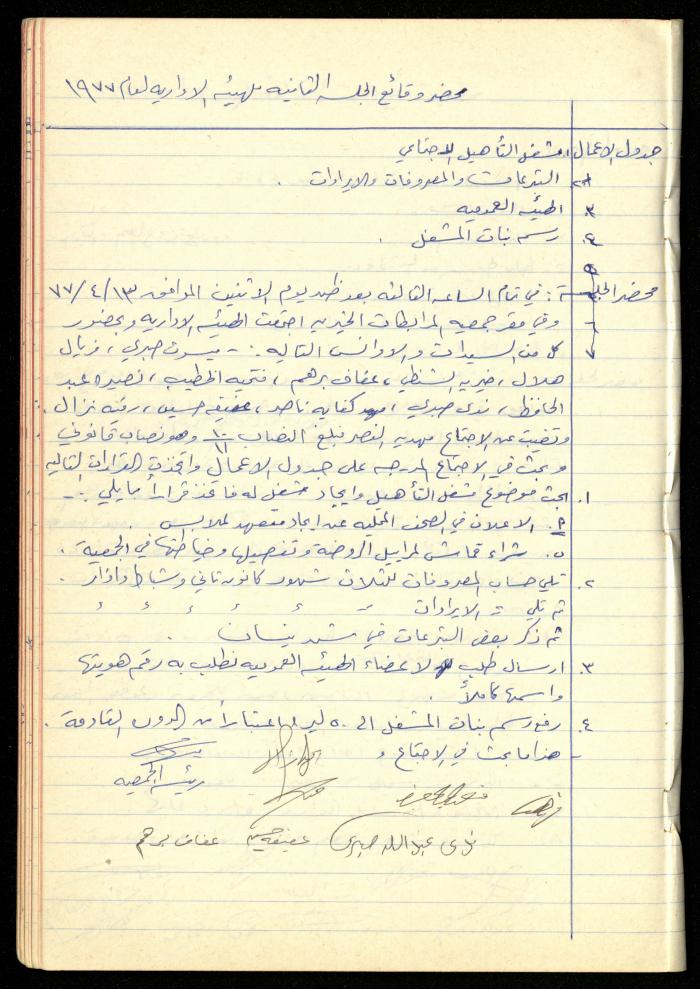 محضر وقائع الجلسه الثانيه للهيئه الاداريه لعام ١٩٧٧
جدول الاعمال ١. مشغل التأهيل الاجتماعي
٢. التبرعات والمصروفات والايرادات .
٣. الهيئه العموميه
٤. رسم بنات المشغل .
٥
محضر الجلسة : في تمام الساعه الثالثه بعد ظهر يوم الاثنين الموافق ١٣/٤/٧٧
وفي مقر جمعيه المرابطات الخيريه اجتمعت الهيئه الاداريه وبحضور
كل من السيدات والاوانس التاليه :- ميسون صبري ، فريال
هلال ، خيريه الشنطي ، عفاف برهم ، فتحيه الخطيب ، نصيره عبد
الحافظ ، ندى صبري ، كفايه ناصر ، عفيفه حسين ، رقيه نزال .
وتغيبت عن الاجتماع مهديه النصر فبلغ النصاب ١٠/١١ وهو نصاب قانوني
وبحث في الاجتماع المدرجه على جدول الاعمال واتخذت القرارات التاليه
١. بحث موضوع مشغل التأهيل وايجاد مشغل له فاتخذ قراراً بما يلي :-
أ. الاعلان في الصحف المحليه عن ايجاد متعهد لملابس .
ب. شراء قماش لمراييل الروضه وتفصيلها وخياطتها في الجمعيه .
٢. تلي حساب المصروفات للثلاث شهور كانون ثاني وشباط واذار .
ثم تلي = الايرادات = ، ، ، ، ،
ثم ذكر بعض التبرعات في شهر نيسان .
٣. ارسال طلب لاعضاء الهيئه العموميه نطلب به رقم هويتها
واسمها كاملاً .
٤. رفع رسم بنات المشغل الى ٥٠ ليره اعتباراً من الدوره القادمة .
- هذا ما بحث في الاجتماع ،
رئيسة الجمعيه
ندى عبدالله صبري عفيفه حسين عفاف برهم